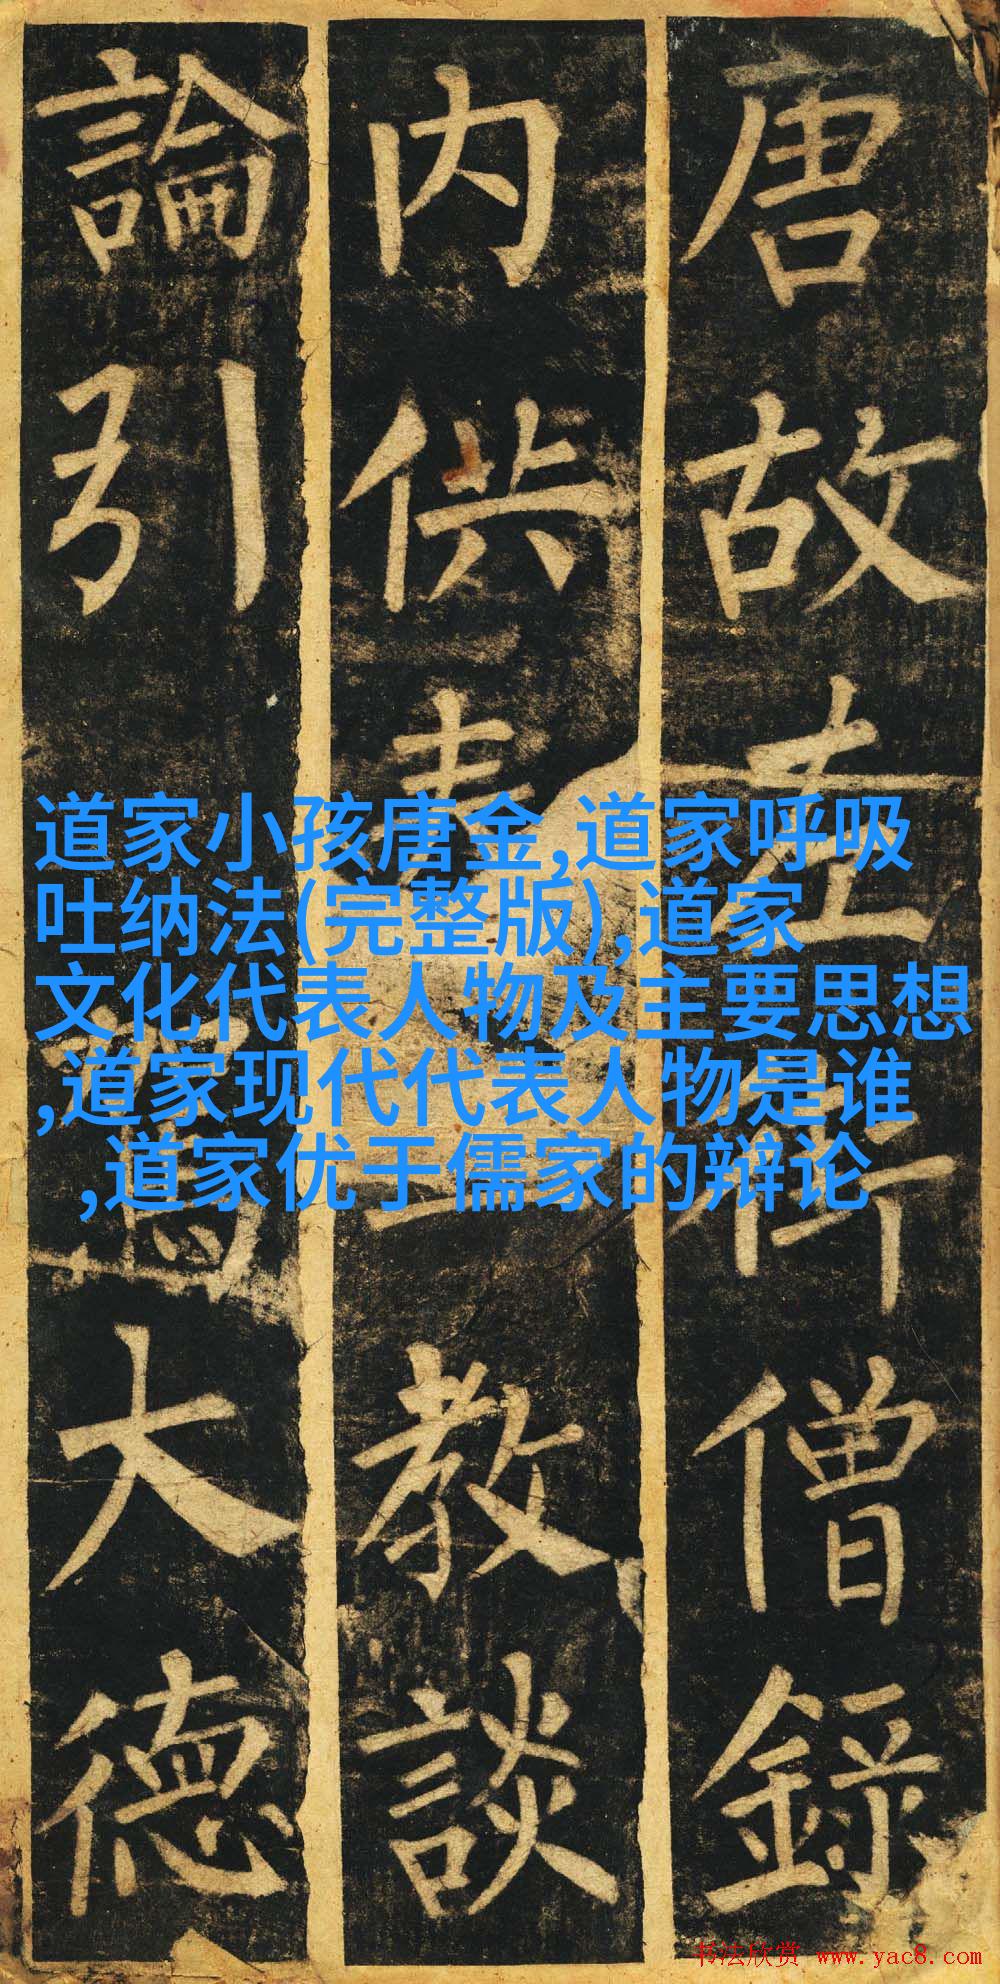 唐故左街僧錄
内供奉三教談
論引駕大德
道家小孩唐金,道家呼吸
吐纳法(完整版),道家
文化代表人物及主要思想
,道家现代代表人物是谁
,道家优于儒家的辩论
书法欣赏 www.yac8.com